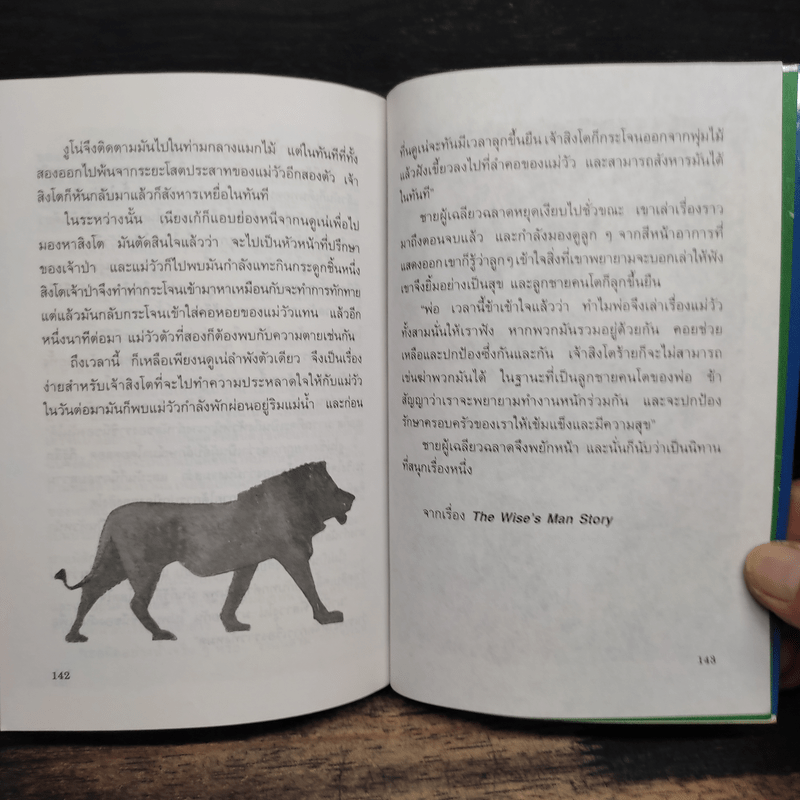 งูโน่จึงติดตามมันไปในท่ามกลางแมกไม้ แต่ในทันทีที่ทั้ง
สองออกไปพ้นจากระยะโสตประสาทของแม่วัวอีกสองตัว เจ้า
สิงโตก็หันกลับมาแล้วก็สังหารเหยื่อในทันที
ในระหว่างนั้น เนียงเก้ก็แอบย่องหนีจากนดูเน่เพื่อไป
มองหาสิงโต มันตัดสินใจแล้วว่า จะไปเป็นหัวหน้าที่ปรึกษา
ของเจ้าป่า และแม่วัวก็ไปพบมันกำลังแทะกินกระดูกชิ้นหนึ่ง
สิงโตเจ้าป่าจึงทำท่ากระโจนเข้ามาหาเหมือนกับจะทำการทักทาย
แต่แล้วมันกลับกระโจนเข้าใส่คอหอยของแม่วัวแทน แล้วอีก
หนึ่งนาทีต่อมา แม่วัวตัวที่สองก็ต้องพบกับความตายเช่นกัน
ถึงเวลานี้ ก็เหลือเพียงนดูเน่ลำพังตัวเดียว จึงเป็นเรื่อง
ง่ายสำหรับเจ้าสิงโตที่จะไปทำความประหลาดใจให้กับแม่วัว
ในวันต่อมามันก็พบแม่วัวกำลังพักผ่อนอยู่ริมแม่น้ำ และก่อน
142
ที่นดูเน่จะทันมีเวลาลุกขึ้นยืน เจ้าสิงโตก็กระโจนออกจากพุ่มไม้
แล้วฝังเขี้ยวลงไปที่ลำคอของแม่วัว และสามารถสังหารมันได้
ในทันที"
ชายผู้เฉลียวฉลาดหยุดเงียบไปชั่วขณะ เขาเล่าเรื่องราว
มาถึงตอนจบแล้ว และกำลังมองดูลูก ๆ จากสีหน้าอาการที่
แสดงออกเขาก็รู้ว่าลูกๆ เข้าใจสิ่งที่เขาพยายามจะบอกเล่าให้ฟัง
เขาจึงยิ้มอย่างเป็นสุข และลูกชายคนโตก็ลุกขึ้นยืน
"พ่อ เวลานี้ข้าเข้าใจแล้วว่า ทำไมพ่อจึงเล่าเรื่องแม่วัว
ทั้งสามนั่นให้เราฟัง หากพวกมันรวมอยู่ด้วยกัน คอยช่วย
เหลือและปกป้องซึ่งกันและกัน เจ้าสิงโตร้ายก็จะไม่สามารถ
เข่นฆ่าพวกมันได้ ในฐานะที่เป็นลูกชายคนโตของพ่อ ข้า
สัญญาว่าเราจะพยายามทำงานหนักร่วมกัน และจะปกป้อง
รักษาครอบครัวของเราให้เข้มแข็งและมีความสุข"
ชายผู้เฉลียวฉลาดจึงพยักหน้า และนั่นก็นับว่าเป็นนิทาน
ที่สนุกเรื่องหนึ่ง
จากเรื่อง The Wise's Man Story
143